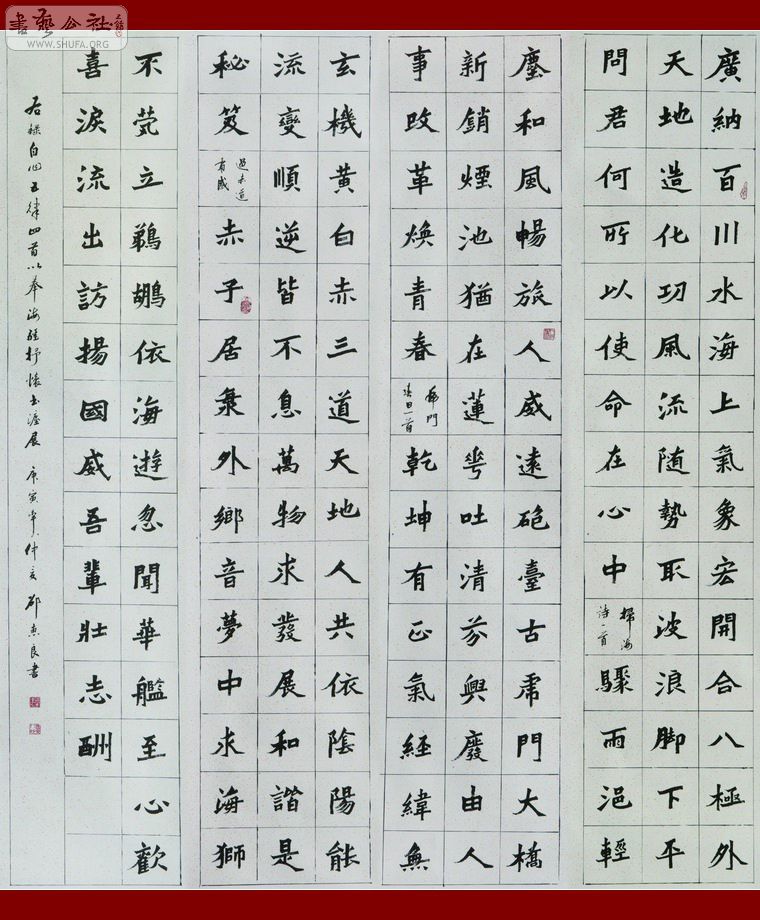 書藝公社
WWW.SHUFA.ORG
廣納百川水海上氣象宏開合八極外
天地造化功風流随勢取波浪脚下平
問君何所以使命在心中
掃海
詩一首
驟雨浥輕
塵和風暢旅人威遠砲臺古虎門大橋
新銷煙池猶在蓮花吐清芬興廢由人
事改革煥青春
虎門
春日一首
乾坤有正氣經緯無
玄機黃白赤三道天地人共依陰陽能
流變順逆皆不息萬物求發展和諧是
秘笈
過赤道
有感
赤子居衆外鄉音夢中求海獅
不煢立鵜鶘依海遊忽聞華艦至心歡
喜淚流出訪揚國威吾輩壯志酬
右錄自作五律四首以奉海疆抒懷書展 庚寅年仲夏 邵惠良書